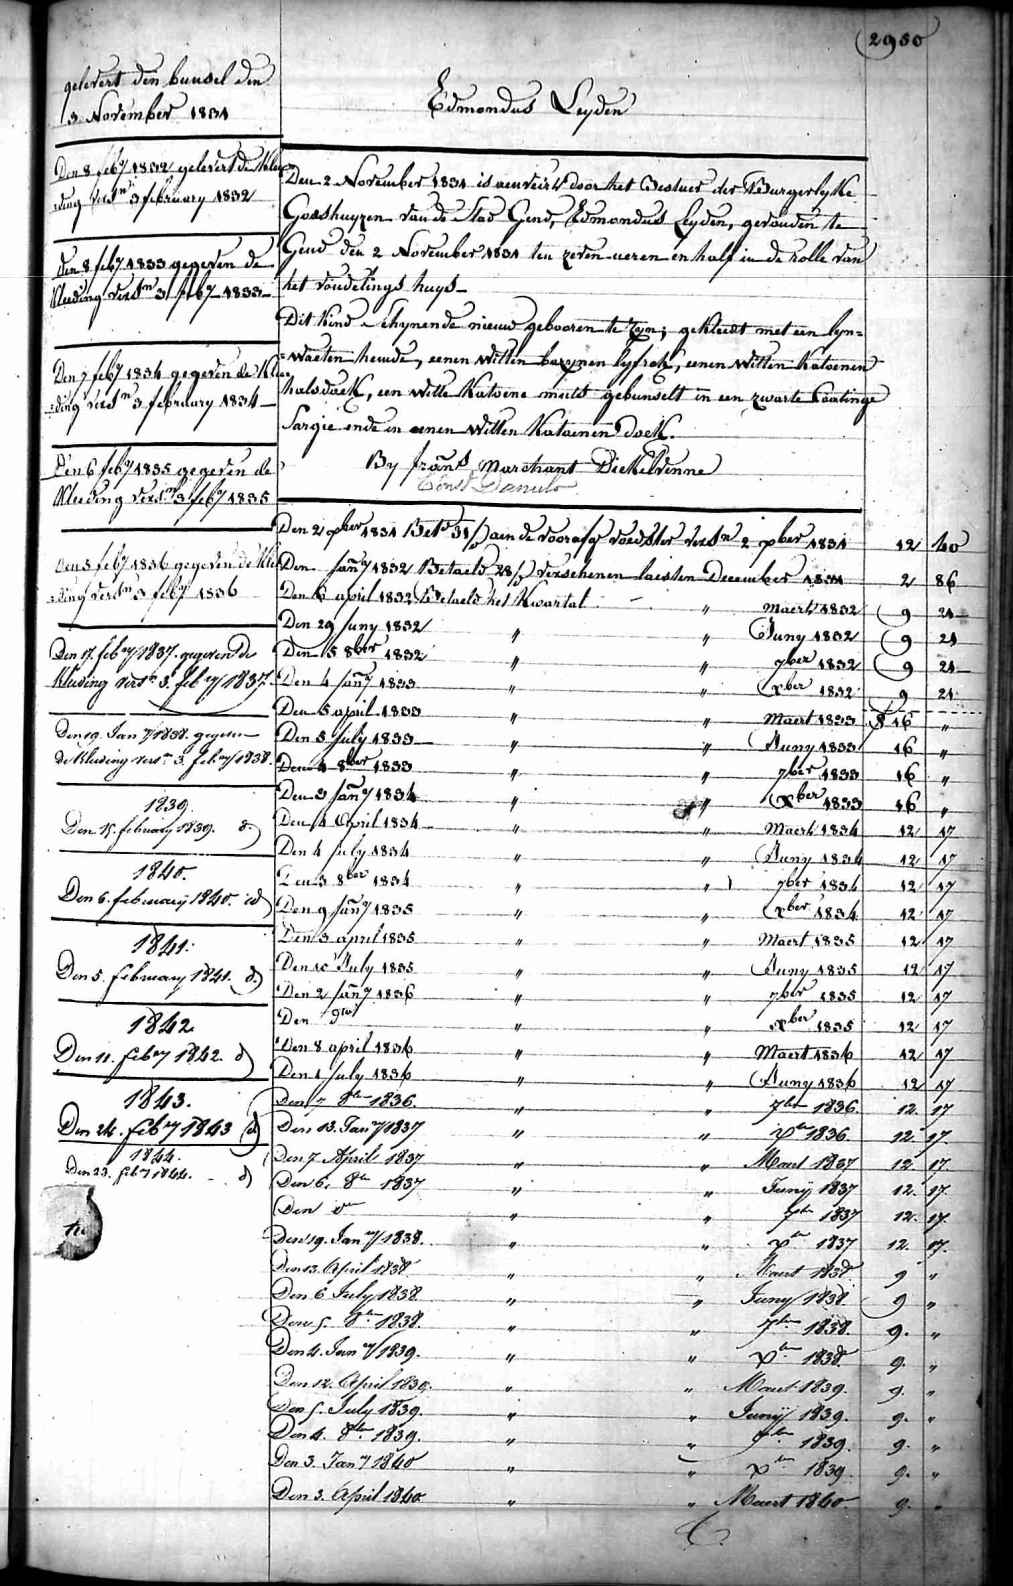 2980
gelevert den bunsel den
3 November 1831
Den 8 feby 1832 gelevert de Klee
=ding verstn 3 february 1832
Den 8 feby 1833 gegeven de
Kleeding verstn 3 feby 1833
Den 7 feby 1834 gegeven de Klee
=ding verstn 3 february 1834
Den 6 feby 1835 gegeven de
Kleeding verstn 3 feby 1835
Den 5 feby 1836 gegeven de Klee
=ding verstn 3 feby 1836
Den 17. febry 1837. gegeven de
Kleeding verstn 3. febry 1837.
Den 19. Jany 1838. gegeven
de Kleeding verstn 3. febry 1838.
1839.
Den 15. february 1839. d.)
1840.
Den 6. february 1840. id)
1841.
Den 5. february 1841. d.)
1842.
Den 11. febry 1842. d)
1843.
Den 24. feby 1843 d)
1844.
Den 23. feby 1844. - d)
Edmondus Leyden
Den 2 November 1831 is aenveird door het Bestuer der Burgerlyke
Godshuyzen van de Stad Gend, Edmondus Leyden, gevonden te
Gend den 2 November 1831 ten zeven ueren en half in de rolle van
het vondelings huys
Dit Kind schynende nieuw gebooren te zyn; gekleedt met een lyn=
=waeten hemde, eenen witten bazynen lyfrok, eenen witten Katoenen
halsdoek, een witte Katoene muts gebunselt in een zwarte Coatinge
Sargie ende in eenen witten Katoenen doek.
By frans Marchant Dickelvenne
Den 2 xber 1831 Bet. 31/ aen de voorafg voedster verstn 2 xber 1831 12 40
Den Jany 1832 Betaeld 28/ verschenen laesten December 1831 2 86
Den 6 april 1832 Betaeld het Kwartal - " Maert 1832 9 21
Den 29 Juny 1832 " " Juny 1832 9 21
Den 15 8ber 1832 " " 7ber 1832 9 21
Den 4 Jany 1833 " " xber 1832 9 21
Den 5 april 1833 " " Maert 1833 16 "
Den 5 July 1833 " " Juny 1833 16 "
Den 4 8ber 1833 " " 7ber 1833 16 "
Den 3 Jany 1834 " " xber 1833 16 "
Den 4 April 1834 " " Maert 1834 12 17
Den 4 July 1834 " " Juny 1834 12 17
Den 3 8ber 1834 " " 7ber 1834 12 17
Den 9 Jany 1835 " " xber 1834 12 17
Den 3 april 1835 " " Maert 1835 12 17
Den 10 July 1835 " " Juny 1835 12 17
Den 2 Jany 1836 " " 7ber 1835 12 17
Den dto " " xber 1835 12 17
Den 8 april 1836 " " Maert 1836 12 17
Den 1 July 1836 " " Juny 1836 12 17
Den 7 8ber 1836. " " 7ber 1836. 12. 17
Den 13. Jany 1837 " " xber 1836. 12. 17.
Den 7 April 1837 " " Maert 1837 12 17.
Den 6. 8ber 1837 " " Juny 1837 12. 17.
Den " " 7ber 1837 12. 17.
Den 19. Jany 1838. " " xber 1837 12. 17.
Den 13. April 1838. " " Maert 1838 9 "
Den 6 July 1838 " " Juny 1838 9 "
Den 5. 8ber 1838. " " 7ber 1838. 9. "
Den 4. Jany 1839. " " xber 1838. 9. "
Den 12. April 1839. " " Maert 1839. 9. "
Den 5. July 1839. " " Juny 1839. 9. "
Den 4. 8ber 1839. " " 7ber 1839. 9. "
Den 3. Jany 1840 " " xber 1839. 9. "
Den 3. April 1840. " " Maert 1840. 9. "